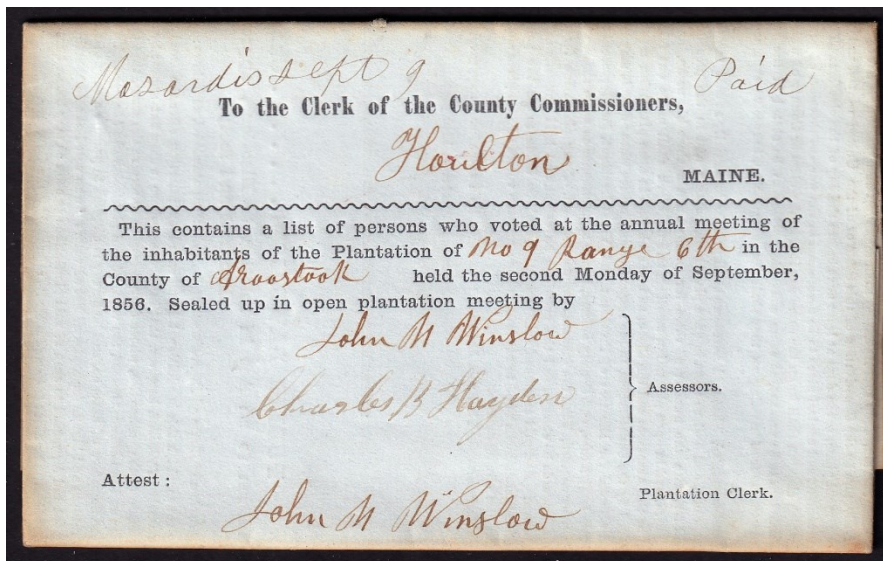 Masardis Sept 9
Paid
To the Clerk of the County Commissioners,
Houlton
MAINE.
This contains a list of persons who voted at the annual meeting of
the inhabitants of the Plantation of No 9 Range 6th in the
County of Aroostook held the second Monday of September,
1856. Sealed up in open plantation meeting by
John M Winslow
Charles B Hayden
Assessors.
Attest :
Plantation Clerk.
John M Winslow